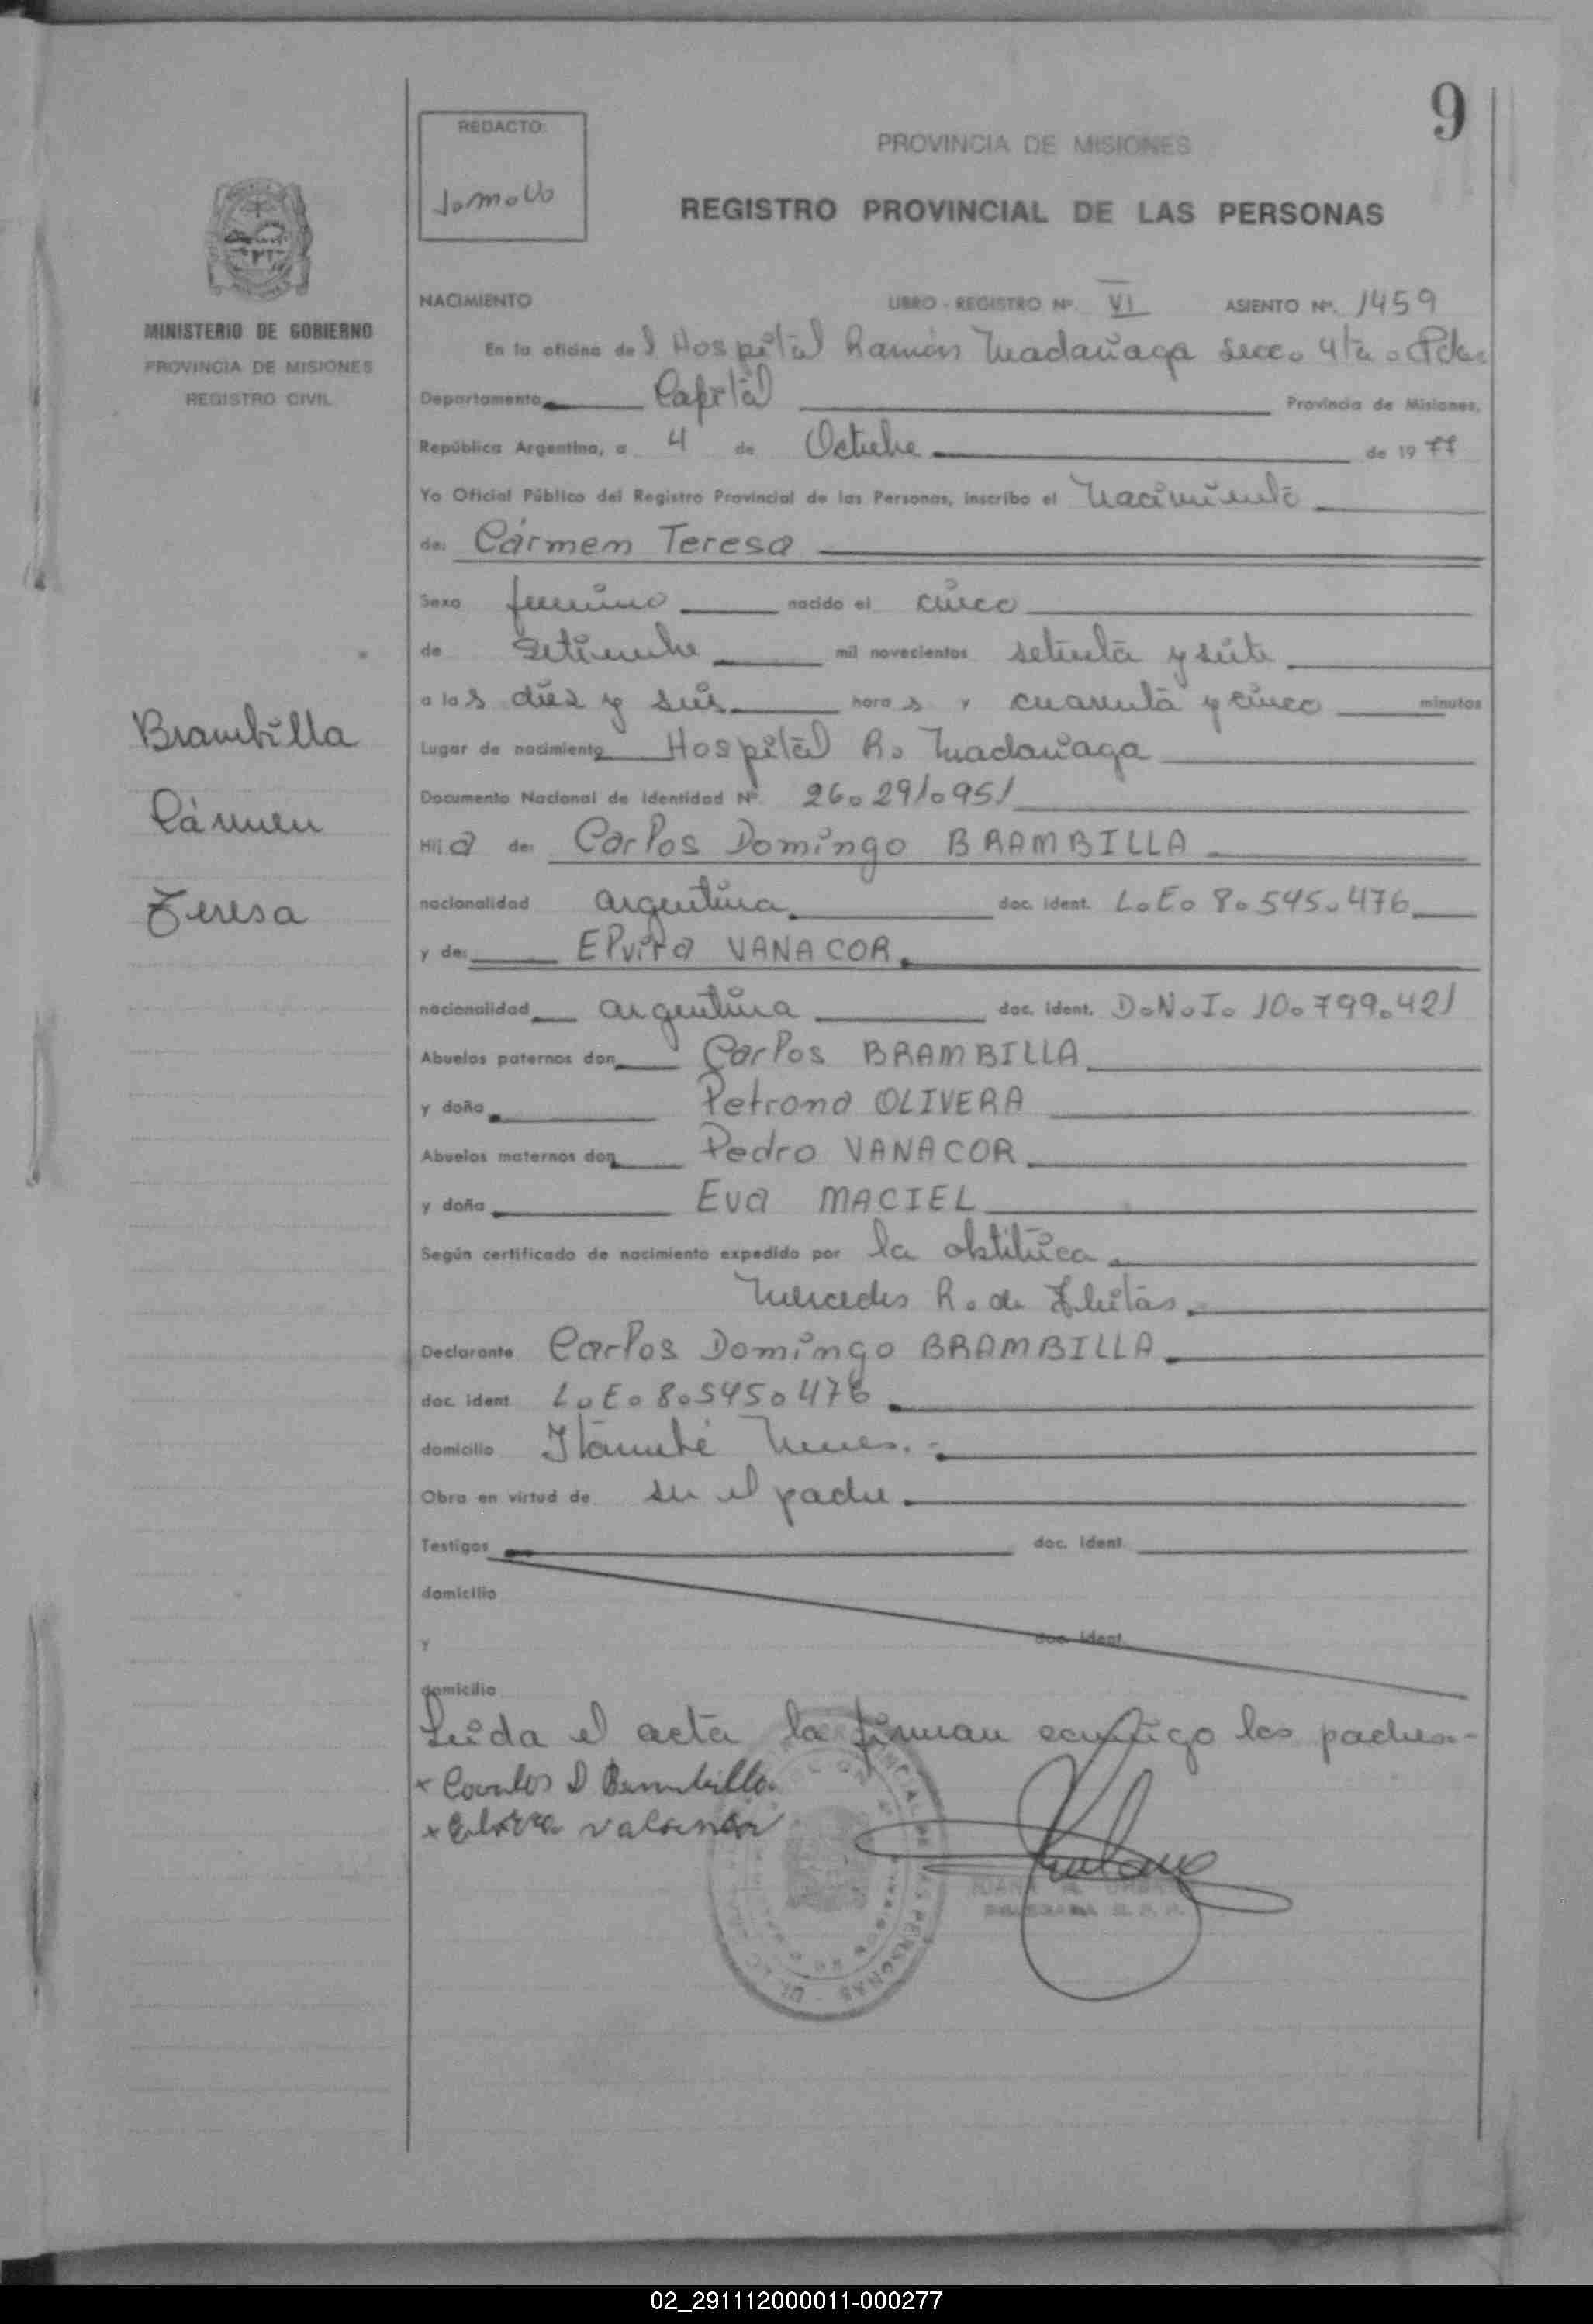 9
REDACTO:
PROVINCIA DE MISIONES
REGISTRO PROVINCIAL DE LAS PERSONAS
MINISTERIO DE GOBIERNO
PROVINCIA DE MISIONES
REGISTRO CIVIL
Brambilla
Cármen
Teresa
NACIMIENTO LIBRO - REGISTRO Nº. VI ASIENTO Nº. 1459
En la oficina del Hospital Ramón Madariaga Secc. 4ta. Pdas
Departamento Capital Provincia de Misiones,
República Argentina, a 4 de Octubre de 1977
Yo Oficial Público del Registro Provincial de las Personas, inscribo el Nacimiento
de: Cármen Teresa
Sexo femenino nacido el cinco
de Setiembre mil novecientos setenta y siete
a las diez y seis horas y cuarenta y cinco minutos
Lugar de nacimiento Hospital R. Madariaga
Documento Nacional de Identidad Nº. 26.291.951
Hija de: Carlos Domingo BRAMBILLA
nacionalidad argentina doc. ident. L.E. 8.545.476
y de: Elvira VANACOR
nacionalidad argentina doc. ident. D.N.I. 10.799.421
Abuelos paternos don Carlos BRAMBILLA
y doña Petrona OLIVERA
Abuelos maternos don Pedro VANACOR
y doña Eva MACIEL
Según certificado de nacimiento expedido por la obstétrica
Mercedes R. de Fleitas
Declarante Carlos Domingo BRAMBILLA
doc. ident. L.E. 8.545.476
domicilio Itaembé Mnes.
Obra en virtud de ser el padre
Testigos doc. ident.
domicilio
y doc. ident.
domicilio
Leida el acta la firman conmigo los padres.-
x Carlos D Brambilla
DELEGADA R. P. P.
02_291112000011-000277